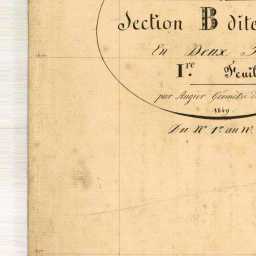 Section B dite
En Deux
Ire. Feuil
par Augier Géomètre d
1849
Du No. 1er. au No.